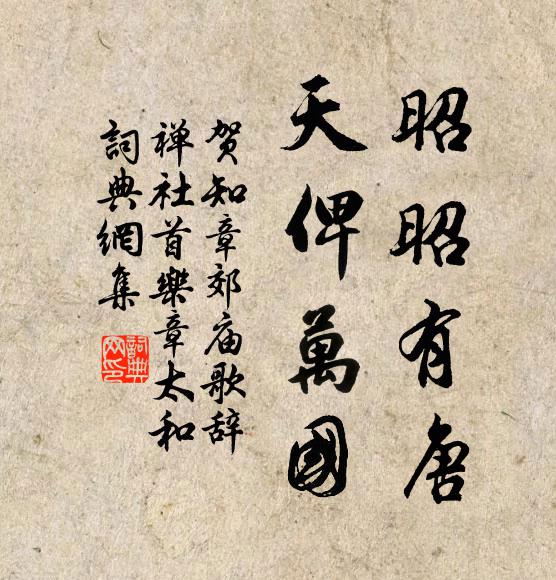 昭昭有唐
天俾萬國
贺知章郊庙歌辞
禅社首樂章太和
詞典網集
詞典網印